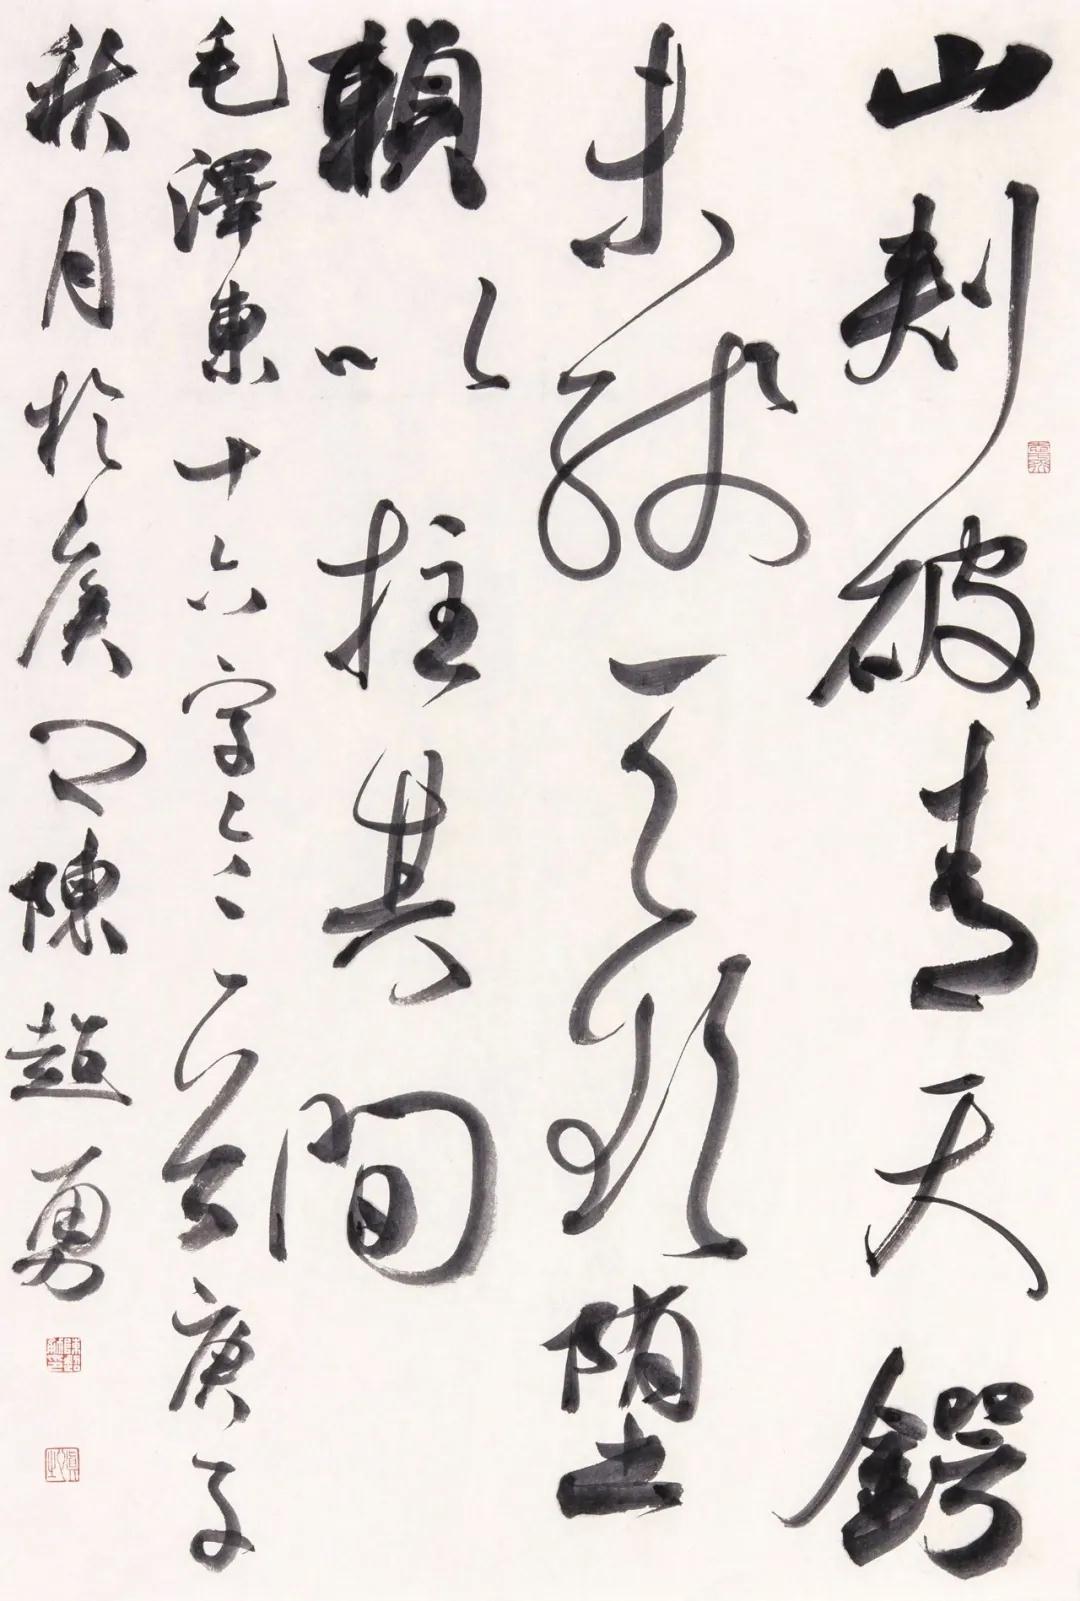 山刺破青天鍔
未殘天欲堕
賴以拄其間
毛澤東十六字令 庚子
秋月於 陳超勇